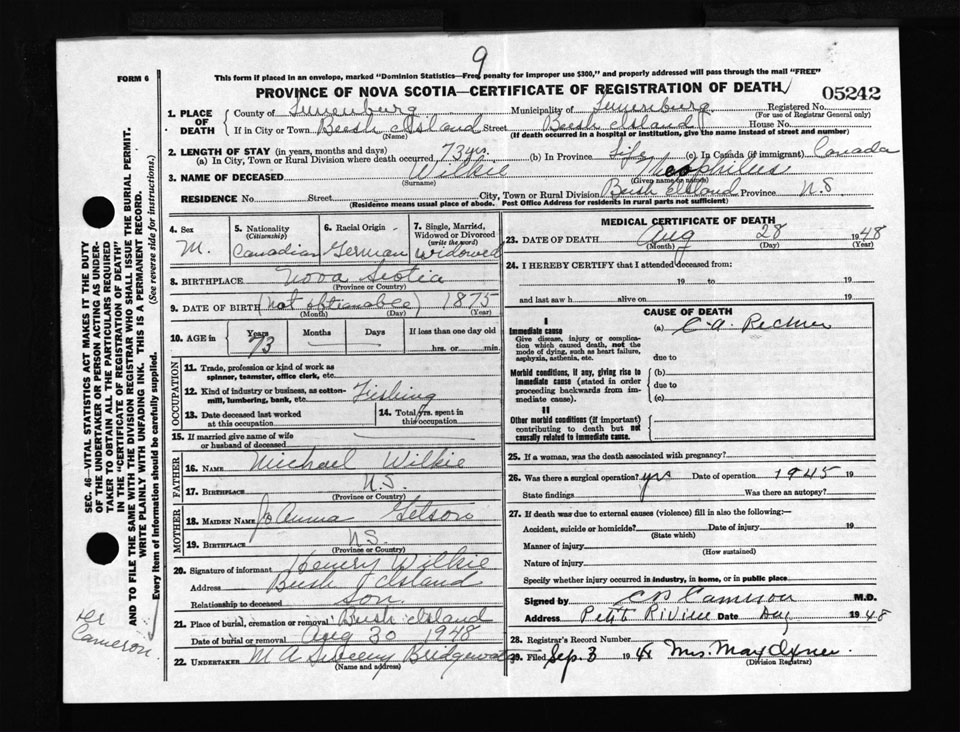 9
FORM 6
This form if placed in an envelope, marked "Dominion Statistics—Free, penalty for improper use $300," and properly addressed will pass through the mail "FREE"
PROVINCE OF NOVA SCOTIA—CERTIFICATE OF REGISTRATION OF DEATH
05242
1. PLACE OF DEATH
County of Lunenburg Municipality of Lunenburg Registered No.
(For use of Registrar General only)
If in City or Town Bush Island Street Bush Island House No.
(Name) (If death occurred in a hospital or institution, give the name instead of street and number)
2. LENGTH OF STAY (in years, months and days)
(a) In City, Town or Rural Division where death occurred 73 yrs. (b) In Province Life (c) In Canada (if immigrant) Canada
3. NAME OF DECEASED Wilkie Theophilus
(Surname) (Given name or names)
RESIDENCE No. Street City, Town or Rural Division Bush Island Province N.S.
(Residence means usual place of abode. Post Office Address for residents in rural parts not sufficient)
4. Sex M.
5. Nationality (Citizenship) Canadian
6. Racial Origin German
7. Single, Married, Widowed or Divorced (write the word) Widowed
8. BIRTHPLACE Nova Scotia
(Province or Country)
9. DATE OF BIRTH (not obtionable) 1875
(Month) (Day) (Year)
10. AGE in Years 73 Months Days If less than one day old hrs. or min.
OCCUPATION
11. Trade, profession or kind of work as spinner, teamster, office clerk, etc.
12. Kind of industry or business, as cotton-mill, lumbering, bank, etc. Fishing
13. Date deceased last worked at this occupation
14. Total yrs. spent in this occupation
15. If married give name of wife or husband of deceased
FATHER
16. NAME Michael Wilkie
17. BIRTHPLACE N.S.
(Province or Country)
MOTHER
18. MAIDEN NAME Jo Anna Gelson
19. BIRTHPLACE N.S.
(Province or Country)
20. Signature of informant Henry Wilkie
Address Bush Island
Relationship to deceased Son
21. Place of burial, cremation or removal Bush Island
Date of burial or removal Aug 30 1948
22. UNDERTAKER M A Sweeny Bridgewater
(Name and address)
MEDICAL CERTIFICATE OF DEATH
23. DATE OF DEATH Aug 28 1948
(Month) (Day) (Year)
24. I HEREBY CERTIFY that I attended deceased from:
19 to 19
and last saw h alive on 19
CAUSE OF DEATH
I
Immediate cause
Give disease, injury or complication which caused death, not the mode of dying, such as heart failure, asphyxia, asthenia, etc.
(a) C.a. Rectum
due to
Morbid conditions, if any, giving rise to immediate cause (stated in order proceeding backwards from immediate cause).
(b)
due to
(c)
II
Other morbid conditions (if important) contributing to death but not causally related to immediate cause.
25. If a woman, was the death associated with pregnancy?
26. Was there a surgical operation? yes Date of operation 1945 19
State findings Was there an autopsy?
27. If death was due to external causes (violence) fill in also the following:—
Accident, suicide or homicide? Date of injury 19
(State which)
Manner of injury
(How sustained)
Nature of injury
Specify whether injury occurred in industry, in home, or in public place
Signed by Cameron M.D.
Address Petite Riviere Date Aug 1948
28. Registrar's Record Number
29. Filed Sep. 3 1948 Mrs. May
(Division Registrar)
SEC. 46—VITAL STATISTICS ACT MAKES IT THE DUTY
OF THE UNDERTAKER OR PERSON ACTING AS UNDER-
TAKER TO OBTAIN ALL THE PARTICULARS REQUIRED
IN THE "CERTIFICATE OF REGISTRATION OF DEATH"
AND TO FILE THE SAME WITH THE DIVISION REGISTRAR WHO SHALL ISSUE THE BURIAL PERMIT.
WRITE PLAINLY WITH UNFADING INK. THIS IS A PERMANENT RECORD.
Every item of information should be carefully supplied. (See reverse side for instructions.)
Dr Cameron.